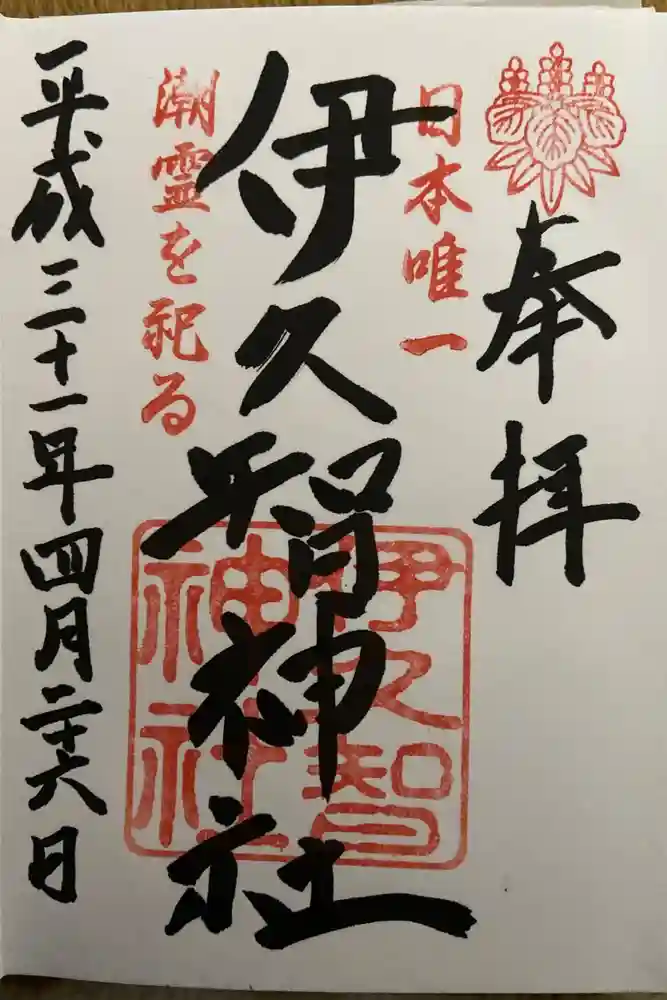 奉拝
日本唯一
伊久智神社
潮霊を祀る
伊久智
神社
平成三十一年四月二十六日